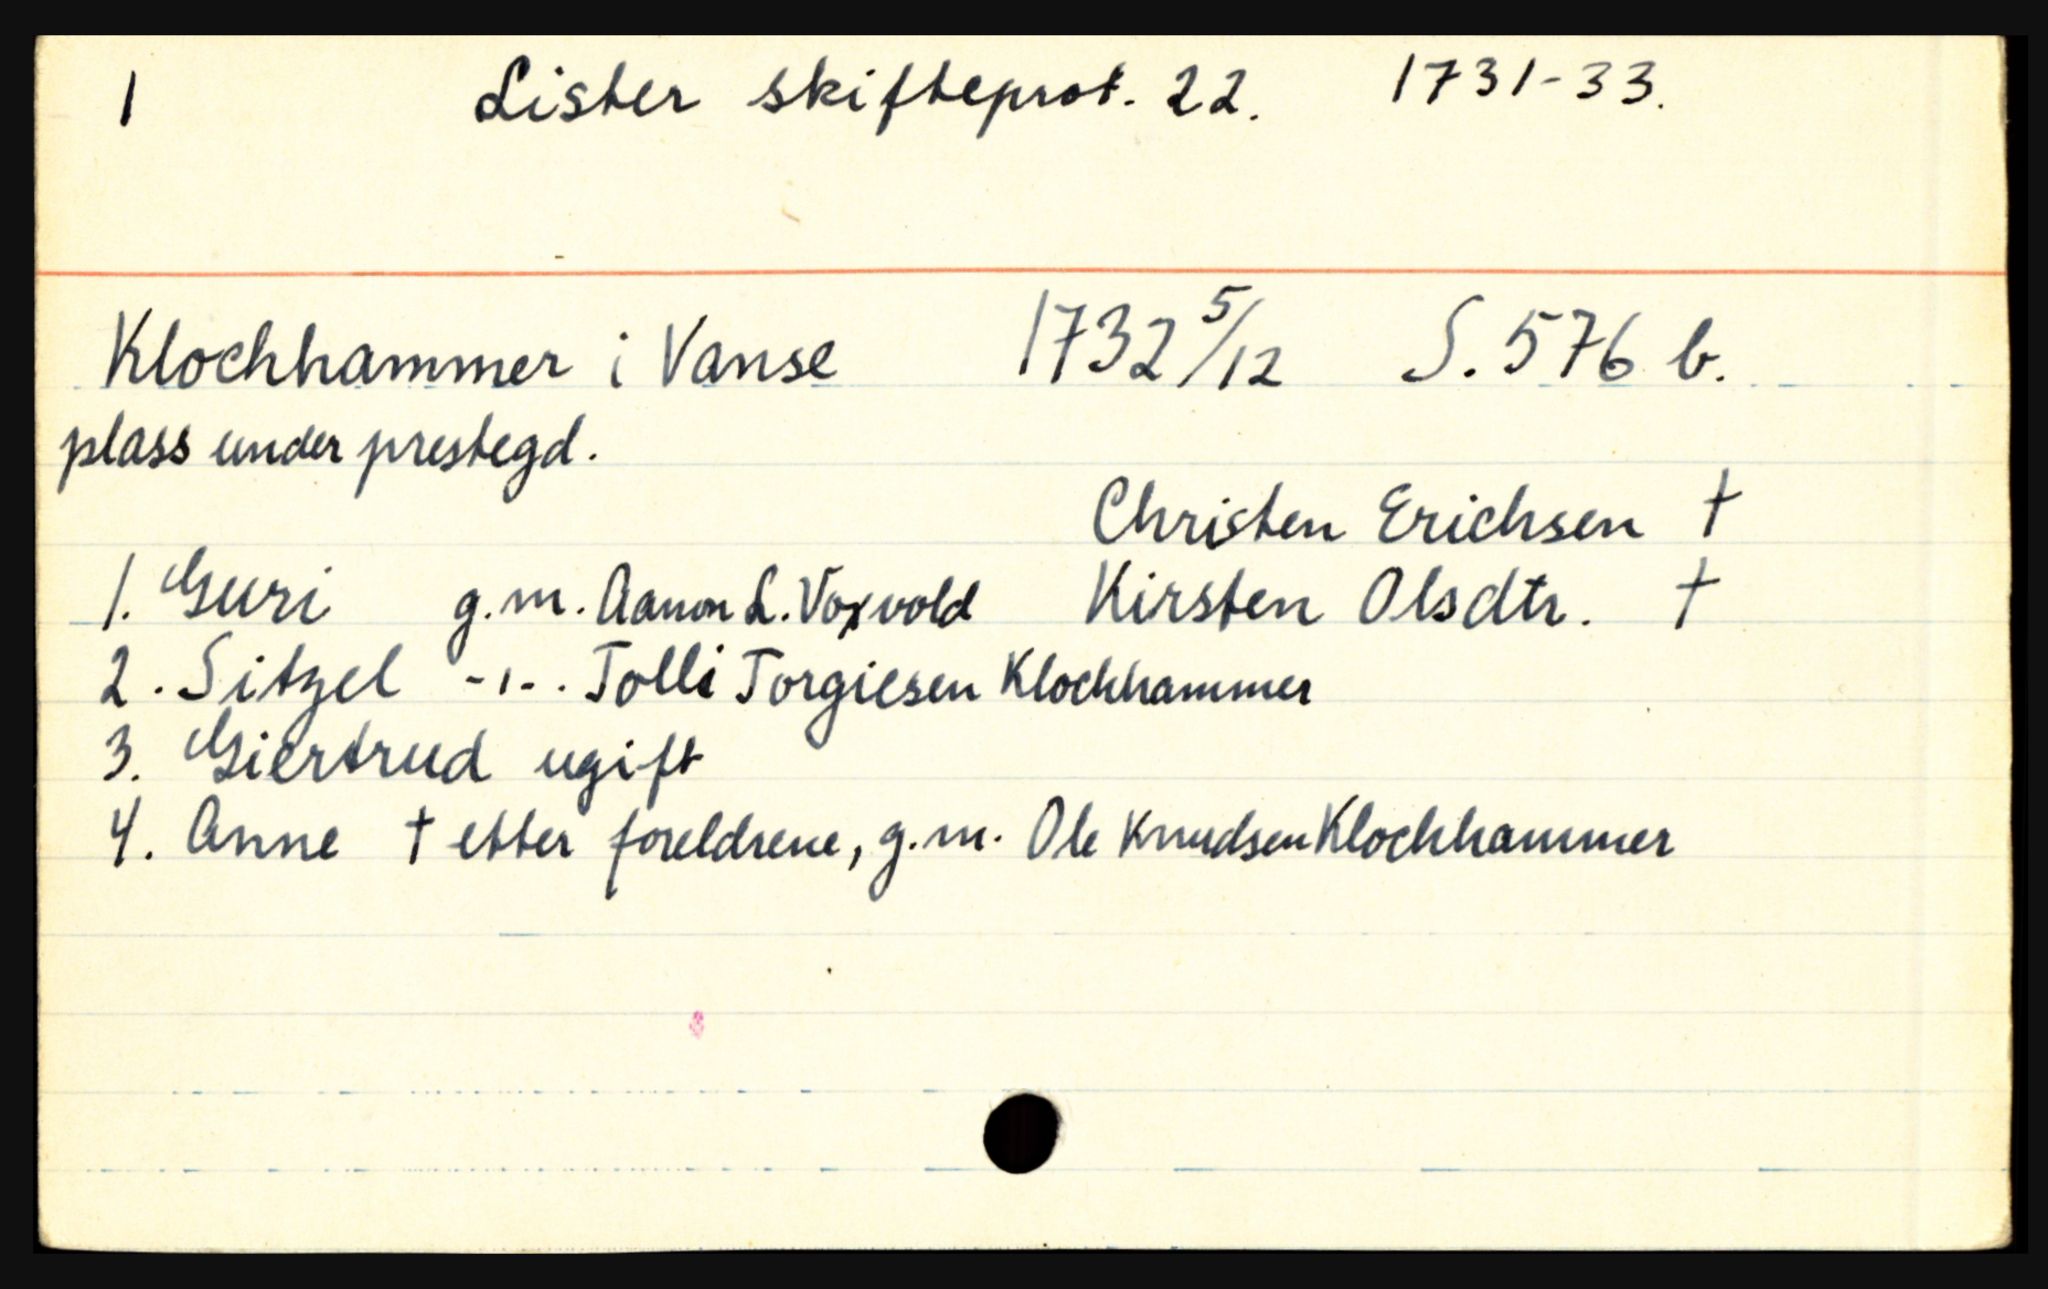 1 Lister skifteprot. 22. 1731-33.
Klochhammer i Vanse 1732 5/12 S. 576 b.
plass under prestegd.
Christen Erichsen †
1. Guri g.m. Aanon L. Voxvold Kirsten Olsdtr. †
2. Sitzel -ı- . Tolli Torgiesen Klochhammer
3. Giertrud ugift
4. Anne † etter foreldrene, g.m. Ole Knudsen Klochhammer